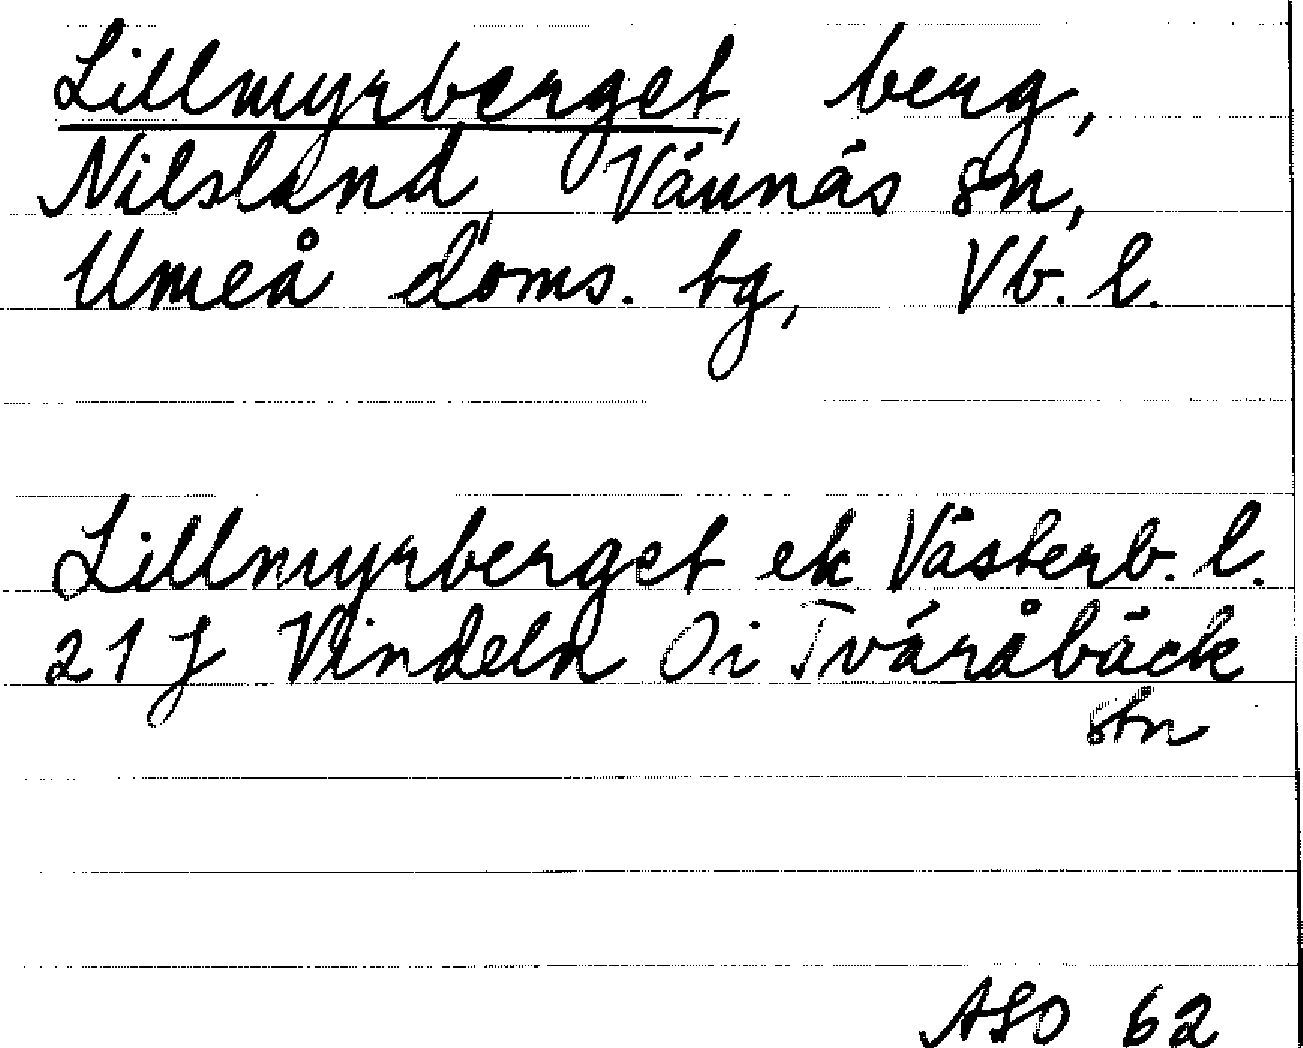 Lillmyrberget, berg,
Nilsland, Vännäs sn,
Umeå doms. tg, Vb. l.
Lillmyrberget ek Västerb. l.
21 J Vindeln Öi Tväråbäck
stn
ASO 62